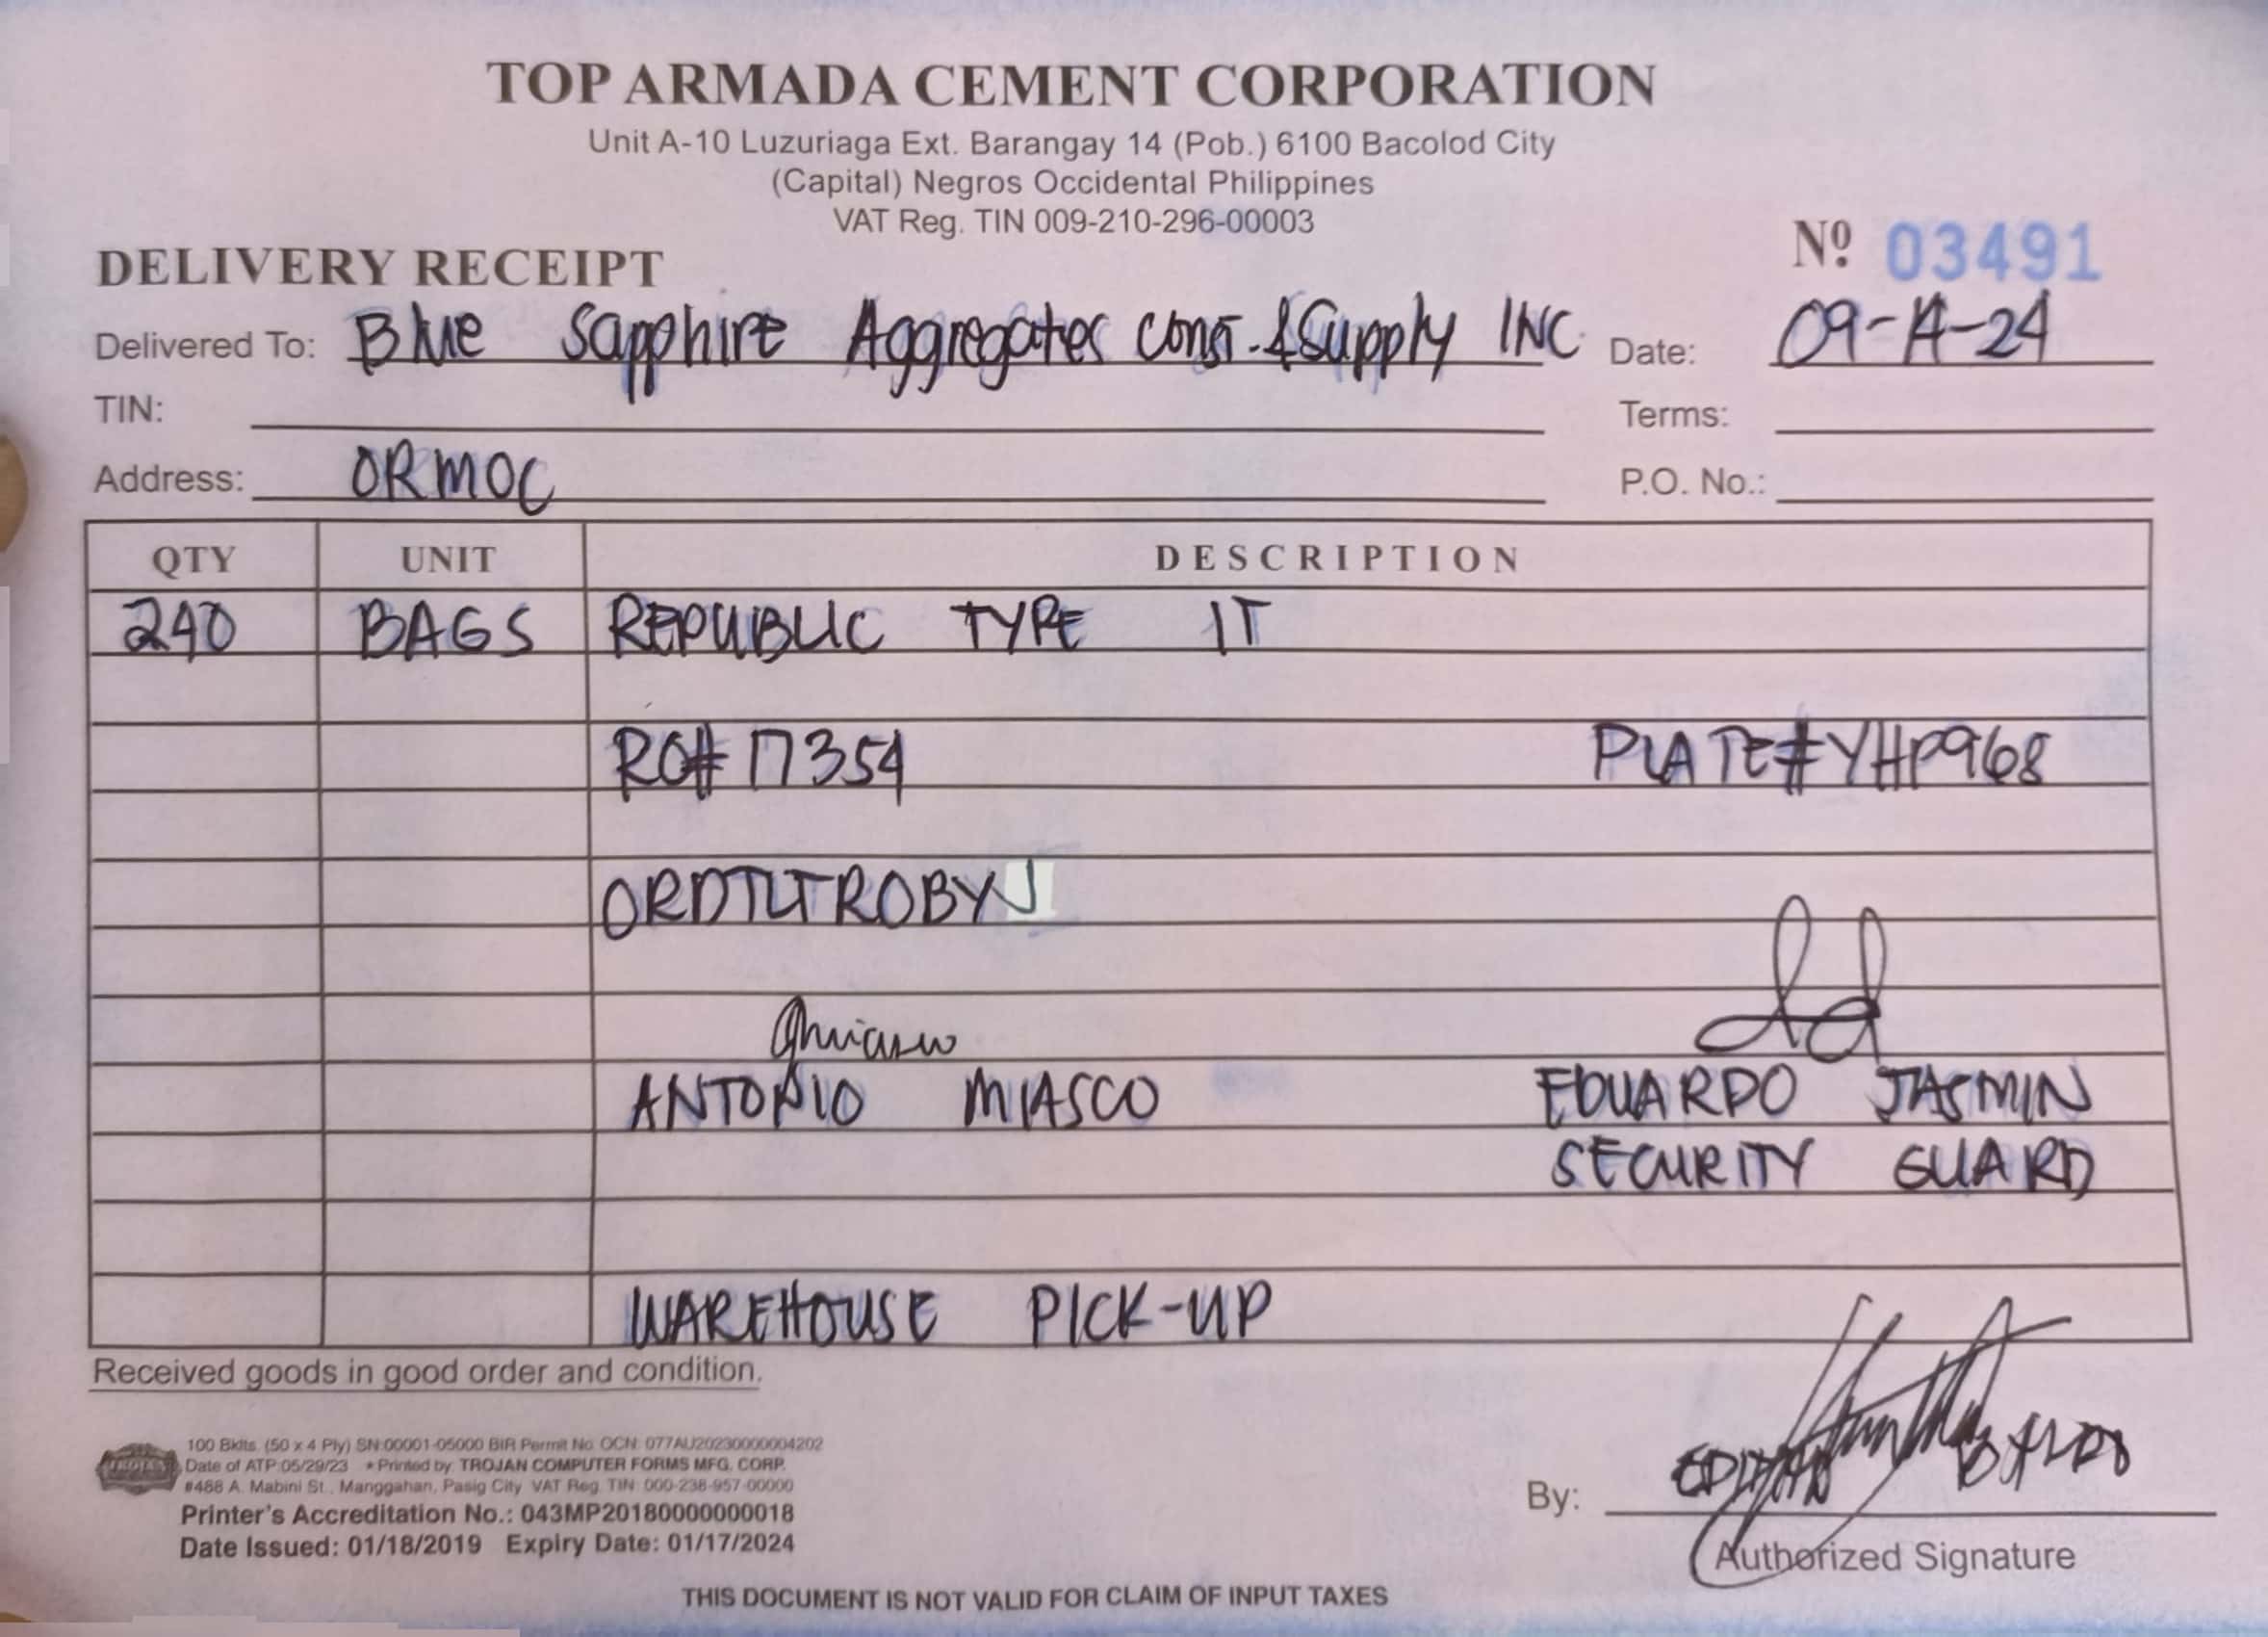 TOP ARMADA CEMENT CORPORATION
Unit A-10 Luzuriaga Ext. Barangay 14 (Pob.) 6100 Bacolod City
(Capital) Negros Occidental Philippines
VAT Reg. TIN 009-210-296-00003
Nº 03491
DELIVERY RECEIPT
Delivered To: Blue Sapphire Aggregates const. & Supply INC Date: 09-14-24
TIN: Terms:
Address: ORMOC P.O. No.:
QTY UNIT DESCRIPTION
240 BAGS REPUBLIC TYPE 1T
RO# 17354 PLATE# YHP968
ORDTLTROBYJ
ANTONIO MIASCO EDUARDO JASMIN
SECURITY GUARD
WAREHOUSE PICK-UP
Received goods in good order and condition.
100 Bklts. (50 x 4 Ply) SN:00001-05000 BIR Permit No. OCN: 077AU20230000004202
Date of ATP:05/29/23 * Printed by: TROJAN COMPUTER FORMS MFG. CORP.
#488 A. Mabini St., Manggahan, Pasig City VAT Reg. TIN: 000-238-957-00000
Printer's Accreditation No.: 043MP20180000000018
Date Issued: 01/18/2019 Expiry Date: 01/17/2024
By:
Authorized Signature
THIS DOCUMENT IS NOT VALID FOR CLAIM OF INPUT TAXES